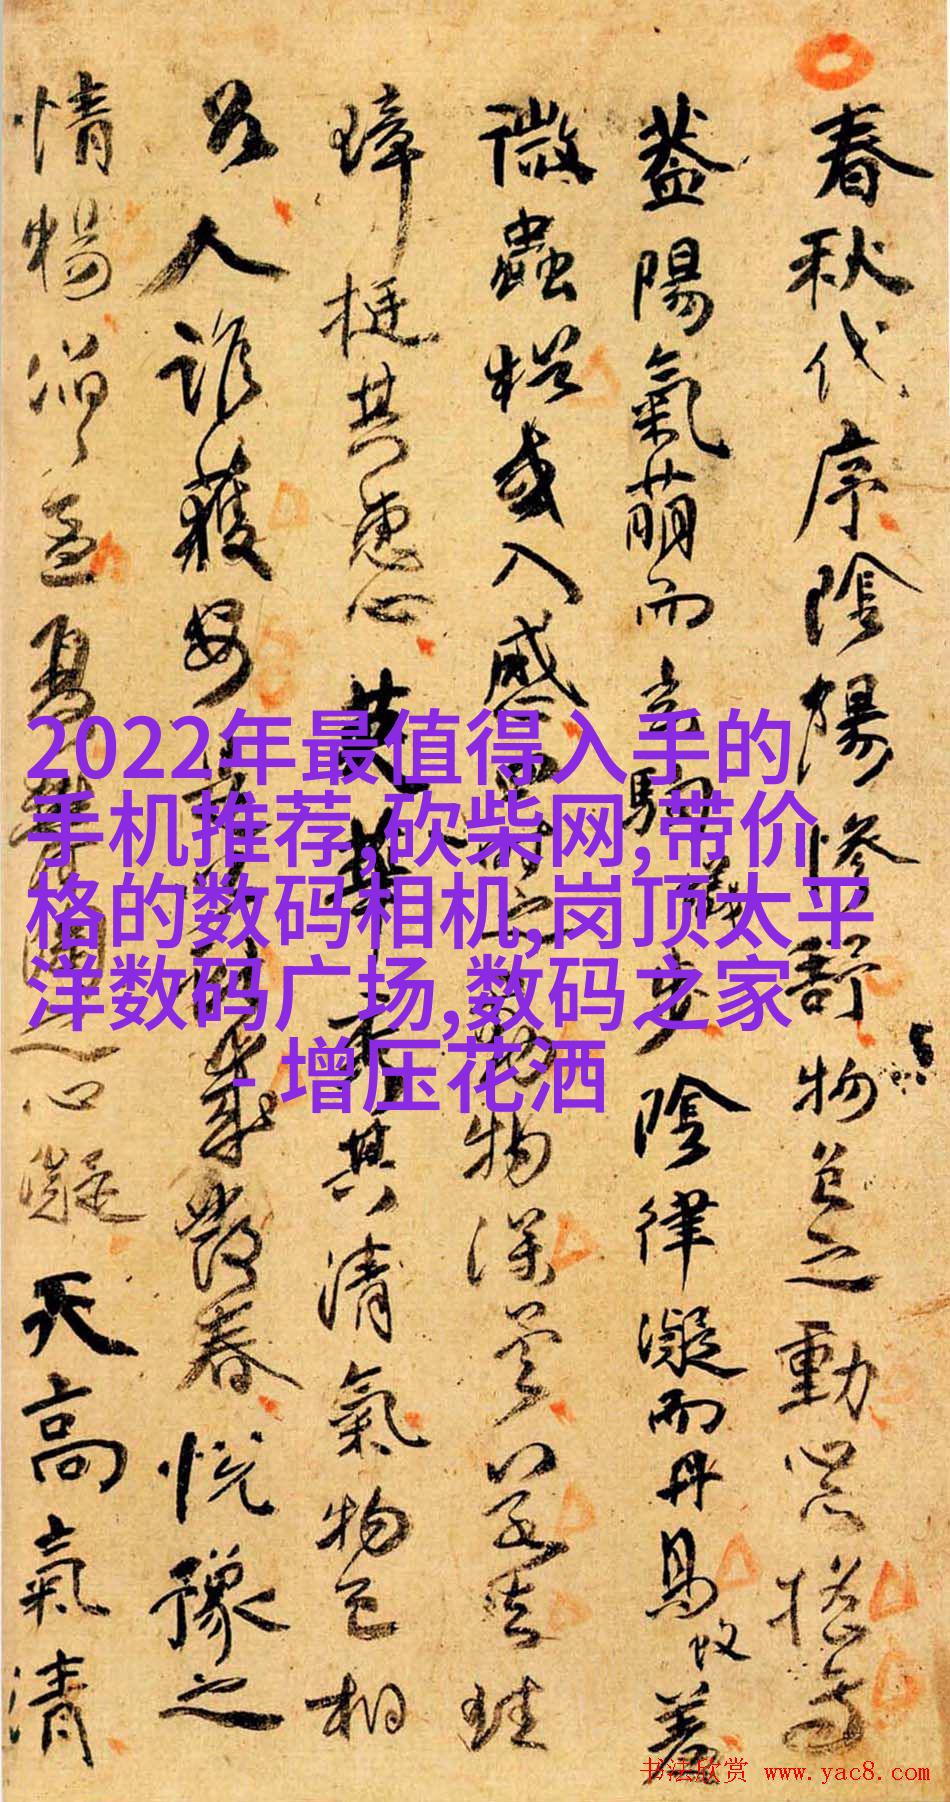 春秋代序陰陽慘舒物色之動心亦搖焉
蓋陽氣萌而玄駒步陰律凝而丹鳥羞
微蟲猶或入感四時之動物深矣若夫珪
璋挺其惠心英華秀其清氣物色相
召人誰獲安是以獻歲發春悅豫之
情暢滔滔孟夏鬱陶之心凝天高氣清
2022年最值得入手的
手机推荐,砍柴网,带价
格的数码相机,岗顶太平
洋数码广场,数码之家
- 增压花洒
书法欣赏 www.yac8.com